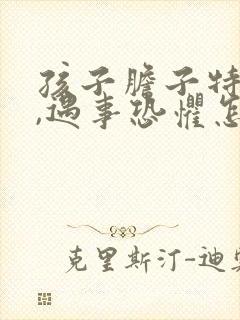 孩子膽子特
,遇事恐懼怎
克里斯汀-迪